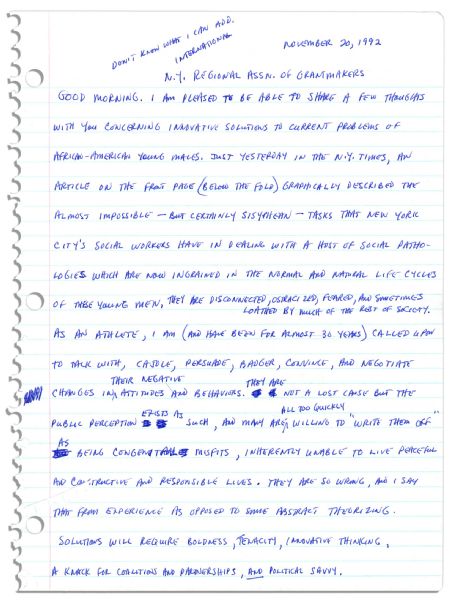 DON'T KNOW WHAT I CAN ADD.
INTERNATIONAL
NOVEMBER 20, 1992
N.Y. REGIONAL ASSN. OF GRANTMAKERS
GOOD MORNING. I AM PLEASED TO BE ABLE TO SHARE A FEW THOUGHTS
WITH YOU CONCERNING INNOVATIVE SOLUTIONS TO CURRENT PROBLEMS OF
AFRICAN-AMERICAN YOUNG MALES. JUST YESTERDAY IN THE N.Y. TIMES, AN
ARTICLE ON THE FRONT PAGE (BELOW THE FOLD) GRAPHICALLY DESCRIBED THE
ALMOST IMPOSSIBLE — BUT CERTAINLY SISYPHEAN — TASKS THAT NEW YORK
CITY'S SOCIAL WORKERS HAVE IN DEALING WITH A HOST OF SOCIAL PATHO-
LOGIES WHICH ARE NOW INGRAINED IN THE NORMAL AND NATURAL LIFE CYCLES
OF THESE YOUNG MEN. THEY ARE DISCONNECTED, OSTRACIZED, FEARED, AND SOMETIMES
LOATHED BY MUCH OF THE REST OF SOCIETY.
AS AN ATHLETE, I AM (AND HAVE BEEN FOR ALMOST 30 YEARS) CALLED UPON
TO TALK WITH, CAJOLE, PERSUADE, BADGER, CONVINCE, AND NEGOTIATE
THEIR NEGATIVE THEY ARE
CHANGES IN ATTITUDES AND BEHAVIORS. NOT A LOST CAUSE BUT THE
EXISTS AS ALL TOO QUICKLY
PUBLIC PERCEPTION SUCH, AND MANY ARE WILLING TO "WRITE THEM OFF"
AS
BEING CONGENITAL MISFITS, INHERENTLY UNABLE TO LIVE PEACEFUL
AND CONSTRUCTIVE AND RESPONSIBLE LIVES. THEY ARE SO WRONG, AND I SAY
THAT FROM EXPERIENCE AS OPPOSED TO SOME ABSTRACT THEORIZING.
SOLUTIONS WILL REQUIRE BOLDNESS, TENACITY, INNOVATIVE THINKING,
A KNACK FOR COALITIONS AND PARTNERSHIPS, AND POLITICAL SAVVY.